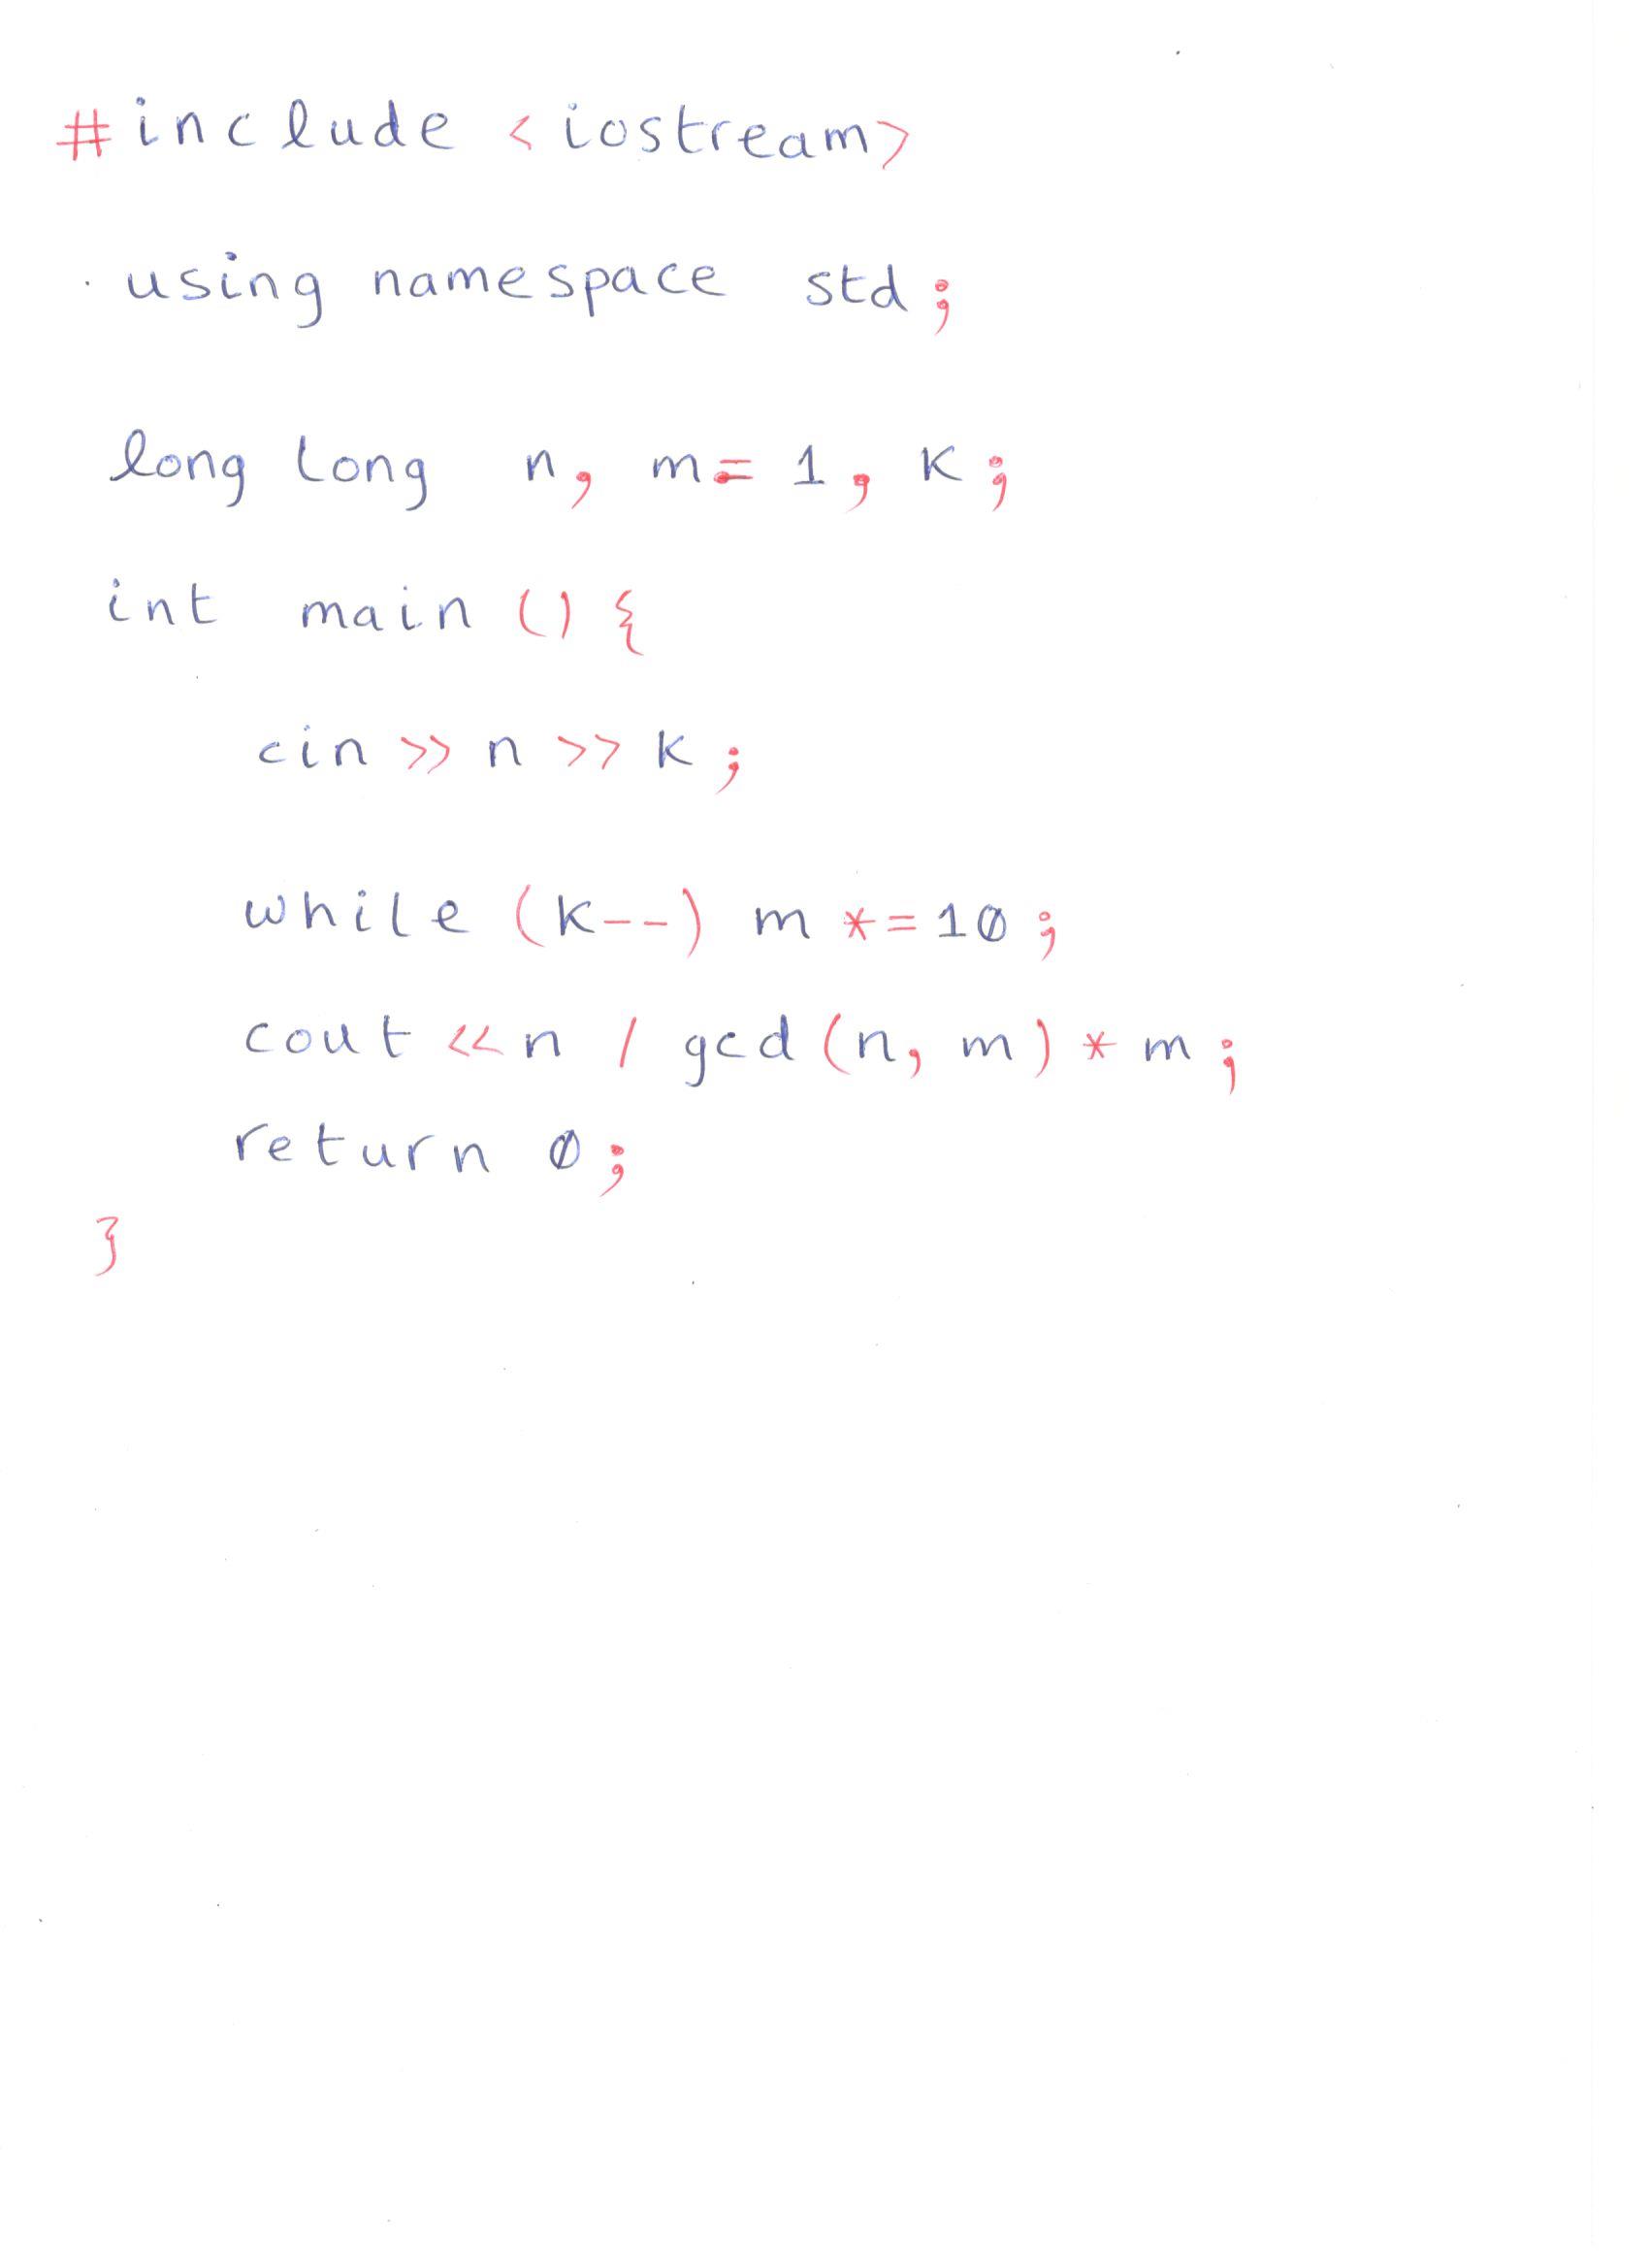 #include <iostream>
using namespace std;
long long n, m = 1, k;
int main () {
cin >> n >> k;
while (k--) m *= 10;
cout << n / gcd (n, m) * m;
return 0;
}